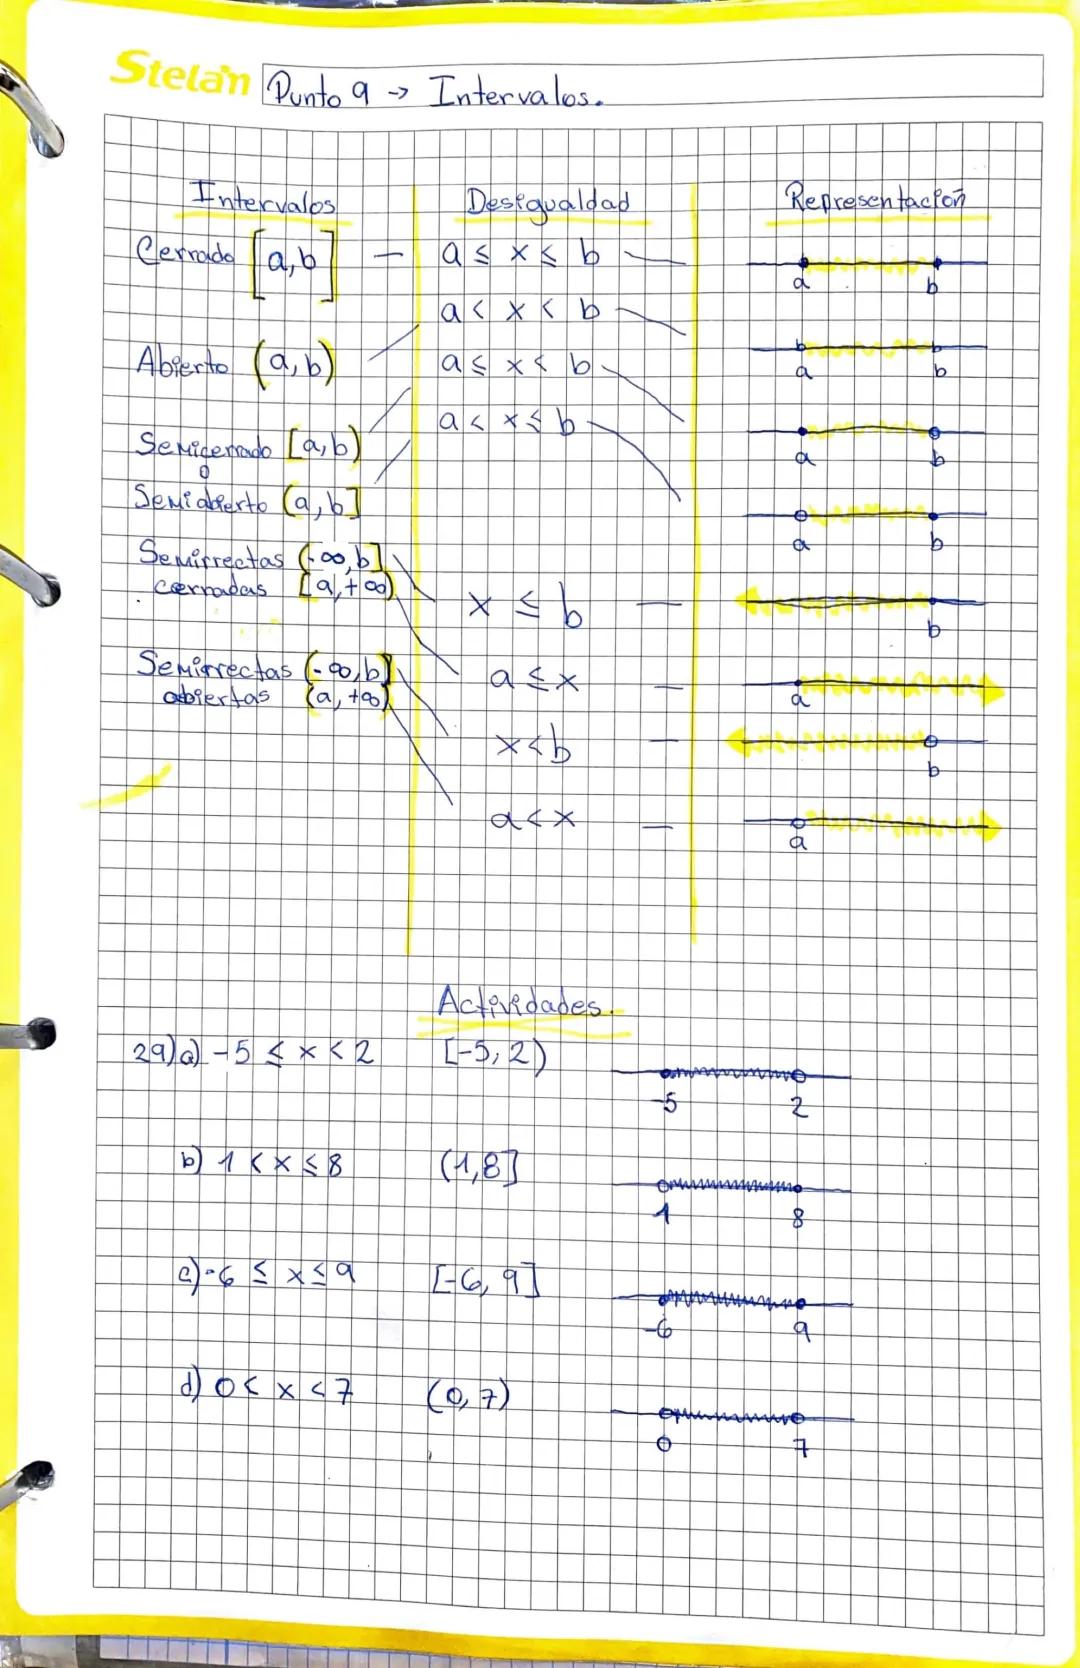 Stelan
Punto 9 → Intervalos.
Intervalos Desigualdad Representación
Cerrado [a,b] — a ≤ x ≤ b —
a b
a < x < b
Abierto (a,b)
a b
a ≤ x < b
a < x ≤ b
Semicerrado [a,b)
a b
o
Semiabierto (a,b]
a b
Semirrectas (-∞,b]
cerradas [a,+∞)
x ≤ b —
b
Semirrectas (-∞,b)
abiertas (a,+∞)
a ≤ x —
a
x < b —
b
a < x —
a
Actividades.
29) a) -5 ≤ x < 2 [-5, 2)
-5 2
b) 1 < x ≤ 8 (1,8]
1 8
c) -6 ≤ x ≤ 9 [-6, 9]
-6 9
d) 0 < x < 7 (0, 7)
0 7